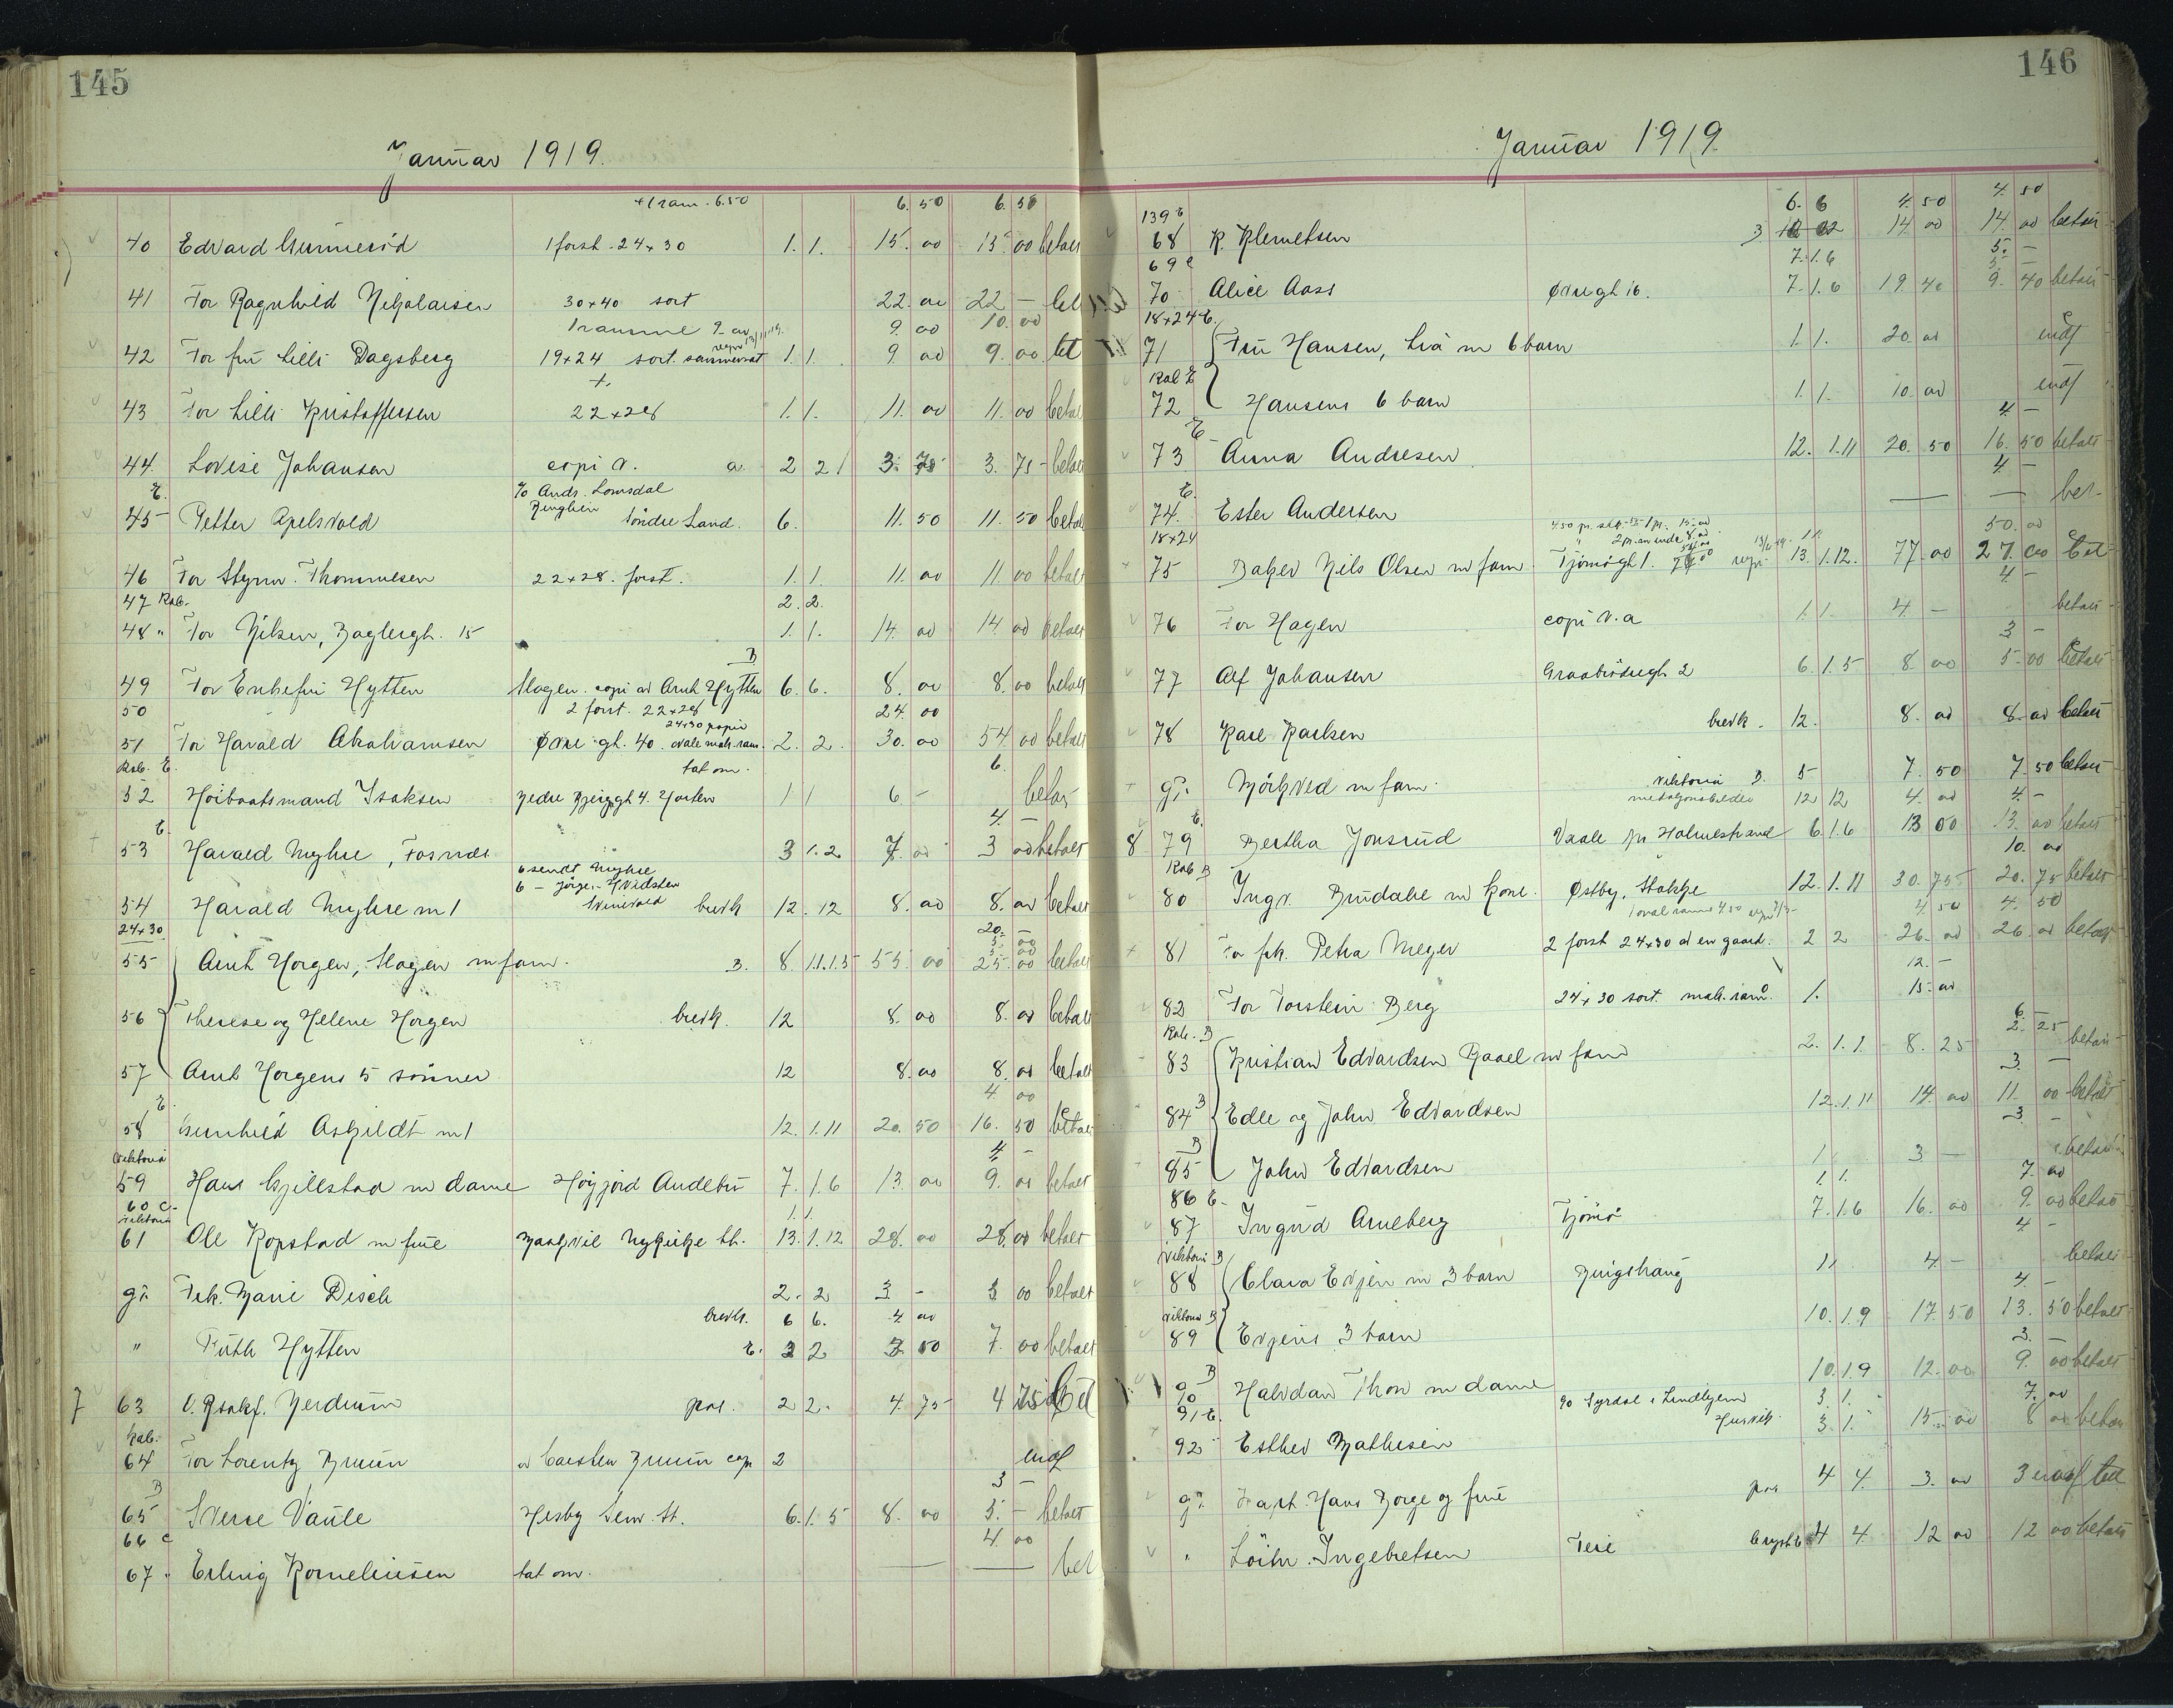 145
Januar 1919.
+ 1 ram. 6.50 6. 50 6. 50
40 Edvard Gunneröd 1 forst. 24 x 30 1. 1. 15. 00 15. 00 betalt
41 For Ragnhild Nikolaisen 30 x 40 sort 22. 00 22 — bet
1 ramme 9. 00 9. 00 10. 00
42 For fru Lilli Dagsberg 19 x 24 sort. 1. 1. 9 00 9. 00 bet
43 For Lilli Kristoffersen 22 x 28 1. 1. 11. 00 11. 00 betalt
44 Lovise Johansen copi v. a. 2 2 3. 75 3. 75 - betalt
E. % Andr. Lomsdal
45 Petter Apelsvold Söndre Land. 6. 11. 50 11. 50 betalt
46 For Styrm. Thommesen 22 x 28. forst. 1. 1. 11. 00 11. 00 betalt
47 Kab. 2. 2.
48 " For Nilsen, Baglergt. 15 1. 1. 14. 00 14. 00 betalt
B
49 For Enkefru Hytten Slagen. copi av Arnt Hytten 6. 6. 8. 00 8. 00 betalt
50 2 forst. 22 x 28 24. 00
24 x 30 papir
51 For Harald Abrahamsen Övre gt. 40. ovale mah. ram. 2. 2. 30. 00 54. 00 betalt
Kab. E. tat om. 6.
52 Höibaatsmand Isaksen Nedre 4. Horten 1 1 6 - betalt
E. 4. —
53 Harald Myhre, Fosnæs 3 1. 2 7. 00 3 00 betalt
6 sendt Myhre
6 - Jörg. Hvidsten
54 Harald Myhre m 1 brevk 12. 12 8. 00 8. 00 betalt
24 x 30 20. —
55 Arnt Horgen, Slagen m fam. B. 8. 1.1.1.5 55. 00 25. 00 betalt
56 Therese og Helene Horgen brevk. 12 8. 00 8. 00 betalt
57 Arnt Horgens 5 sönner 12 8. 00 8. 00 betalt
E. 4 00
58 Gunhild Askjeldt m 1 12. 1. 11 20. 50 16. 50 betalt
Viktoria 4 -
59 Hans Gjillestad m dame Höyjord Andebu 7. 1. 6 13. 00 9. 00 betalt
60 C. 1. 1.
Viktoria
61 Ole Kopstad m frue Nykirke St. 13. 1. 12 28. 00 28. 00 betalt
gr. Frk. Marie Disch 2. 2 3 - 3 00 betalt
brevk. 6 6. 4 00
" Ruth Hytten E. 3 2 3. 50 7. 00 betalt
7 63 O. Nerdrum pas. 2 2. 4. 75 4 75 bet
Kab.
64 For Lorentz Bruun av Carsten Bruun cop 2 utgf
B 3 —
65 Sverre Vaule Hesby Sem. St. 6. 1. 5 8. 00 5. - betalt
66 C 4. 00
67 " Erling Korneliusen tat om. — — bet
146
Januar 1919.
6. 6 4. 50 4. 50
139 E
68 K. Klemetsen 3 12 12 14 00 14. 00 betalt
69 C 7. 1. 6 5. —
70 Alice Aass Övregt 16. 7. 1. 6 19. 40 9. 40 betalt
18 x 24 E.
71 Fru Hansen, Lia m 6 barn 1. 1. 20. 00 utgf
Kab E
72 Hansens 6 barn 1. 1. 10. 00 utgf
E 4. —
73 Anna Andresen 12. 1. 11 20. 50 16. 50 betalt
E. 4 —
74. Ester Andersen — — bet.
18 x 24 50. 00
75 Baker Nils Olsen m fam. Tjömögt 1. 13. 1. 12. 77. 00 27. 00 bet
4 -
76 For Hagen copi v. a 1 1. 4. — betalt
3 —
77 Alf Johansen Graabrödregt 2 6. 1. 5 8. 00 5. 00 betalt
78 Karl Karlsen brevk. 12. 8. 00 8. 00 betalt
gr. Mörkved m fam. Viktoria B. 5 7. 50 7. 50 betalt
medaljonsbilder 12 12 4. 00 4. -
E.
8 79 Bertha Jonsrud Vaale pr Holmestrand 6. 1. 6 13 00 13. 00 betalt
Kab B 10. 00
80 Ingv. Brudalie m kone. Østby, Stokke 12. 1. 11 30. 75 20. 75 betalt
1 oval ramme 4.50 4. 50 4. 50
81 For frk. Petra Meyer 2 forst 24 x 30 av en gaard. 2 2 26. 00 26. 00 betalt
12. —
82 For Torstein Berg 24 x 30 sort. mah. ram. 1. 15. 00
Kab. B 6.
83 Kristian Edvardsen Raael m fam 2. 1. 1. 8. 25 2. 25 betalt
B 3. —
84 Edle og John Edvardsen 12. 1. 11 14. 00 11. 00 betalt
B 3. —
85 John Edvardsen 1. 3 — betalt
86 E. 1. 1. 7. 00
87 Ingrid Arneberg Tjömö 7. 1. 6 16. 00 9. 00 betalt
Viktoria B 4 -
88 Clara Evjen m 3 barn Ringshaug 1 1 4 — betalt
Viktoria B 4 -
89 Evjens 3 barn 10. 1. 9 17. 50 13. 50 betalt
B 3. —
90 Halvdan Thon m dame 10. 1. 9 12. 00 9. 00 betalt
91 E. % Syrdal i Lindkjem 3 1. 7. 00
92 " Esther Mathisen Husvik. 3. 1. 15. 00 8 00 betalt
gr. Kapt. Hans Borge og frue pas 4 4. 3. 00 3 bet
" Löitn. Ingebretsen Teie 4 4. 12 00 12 00 betalt